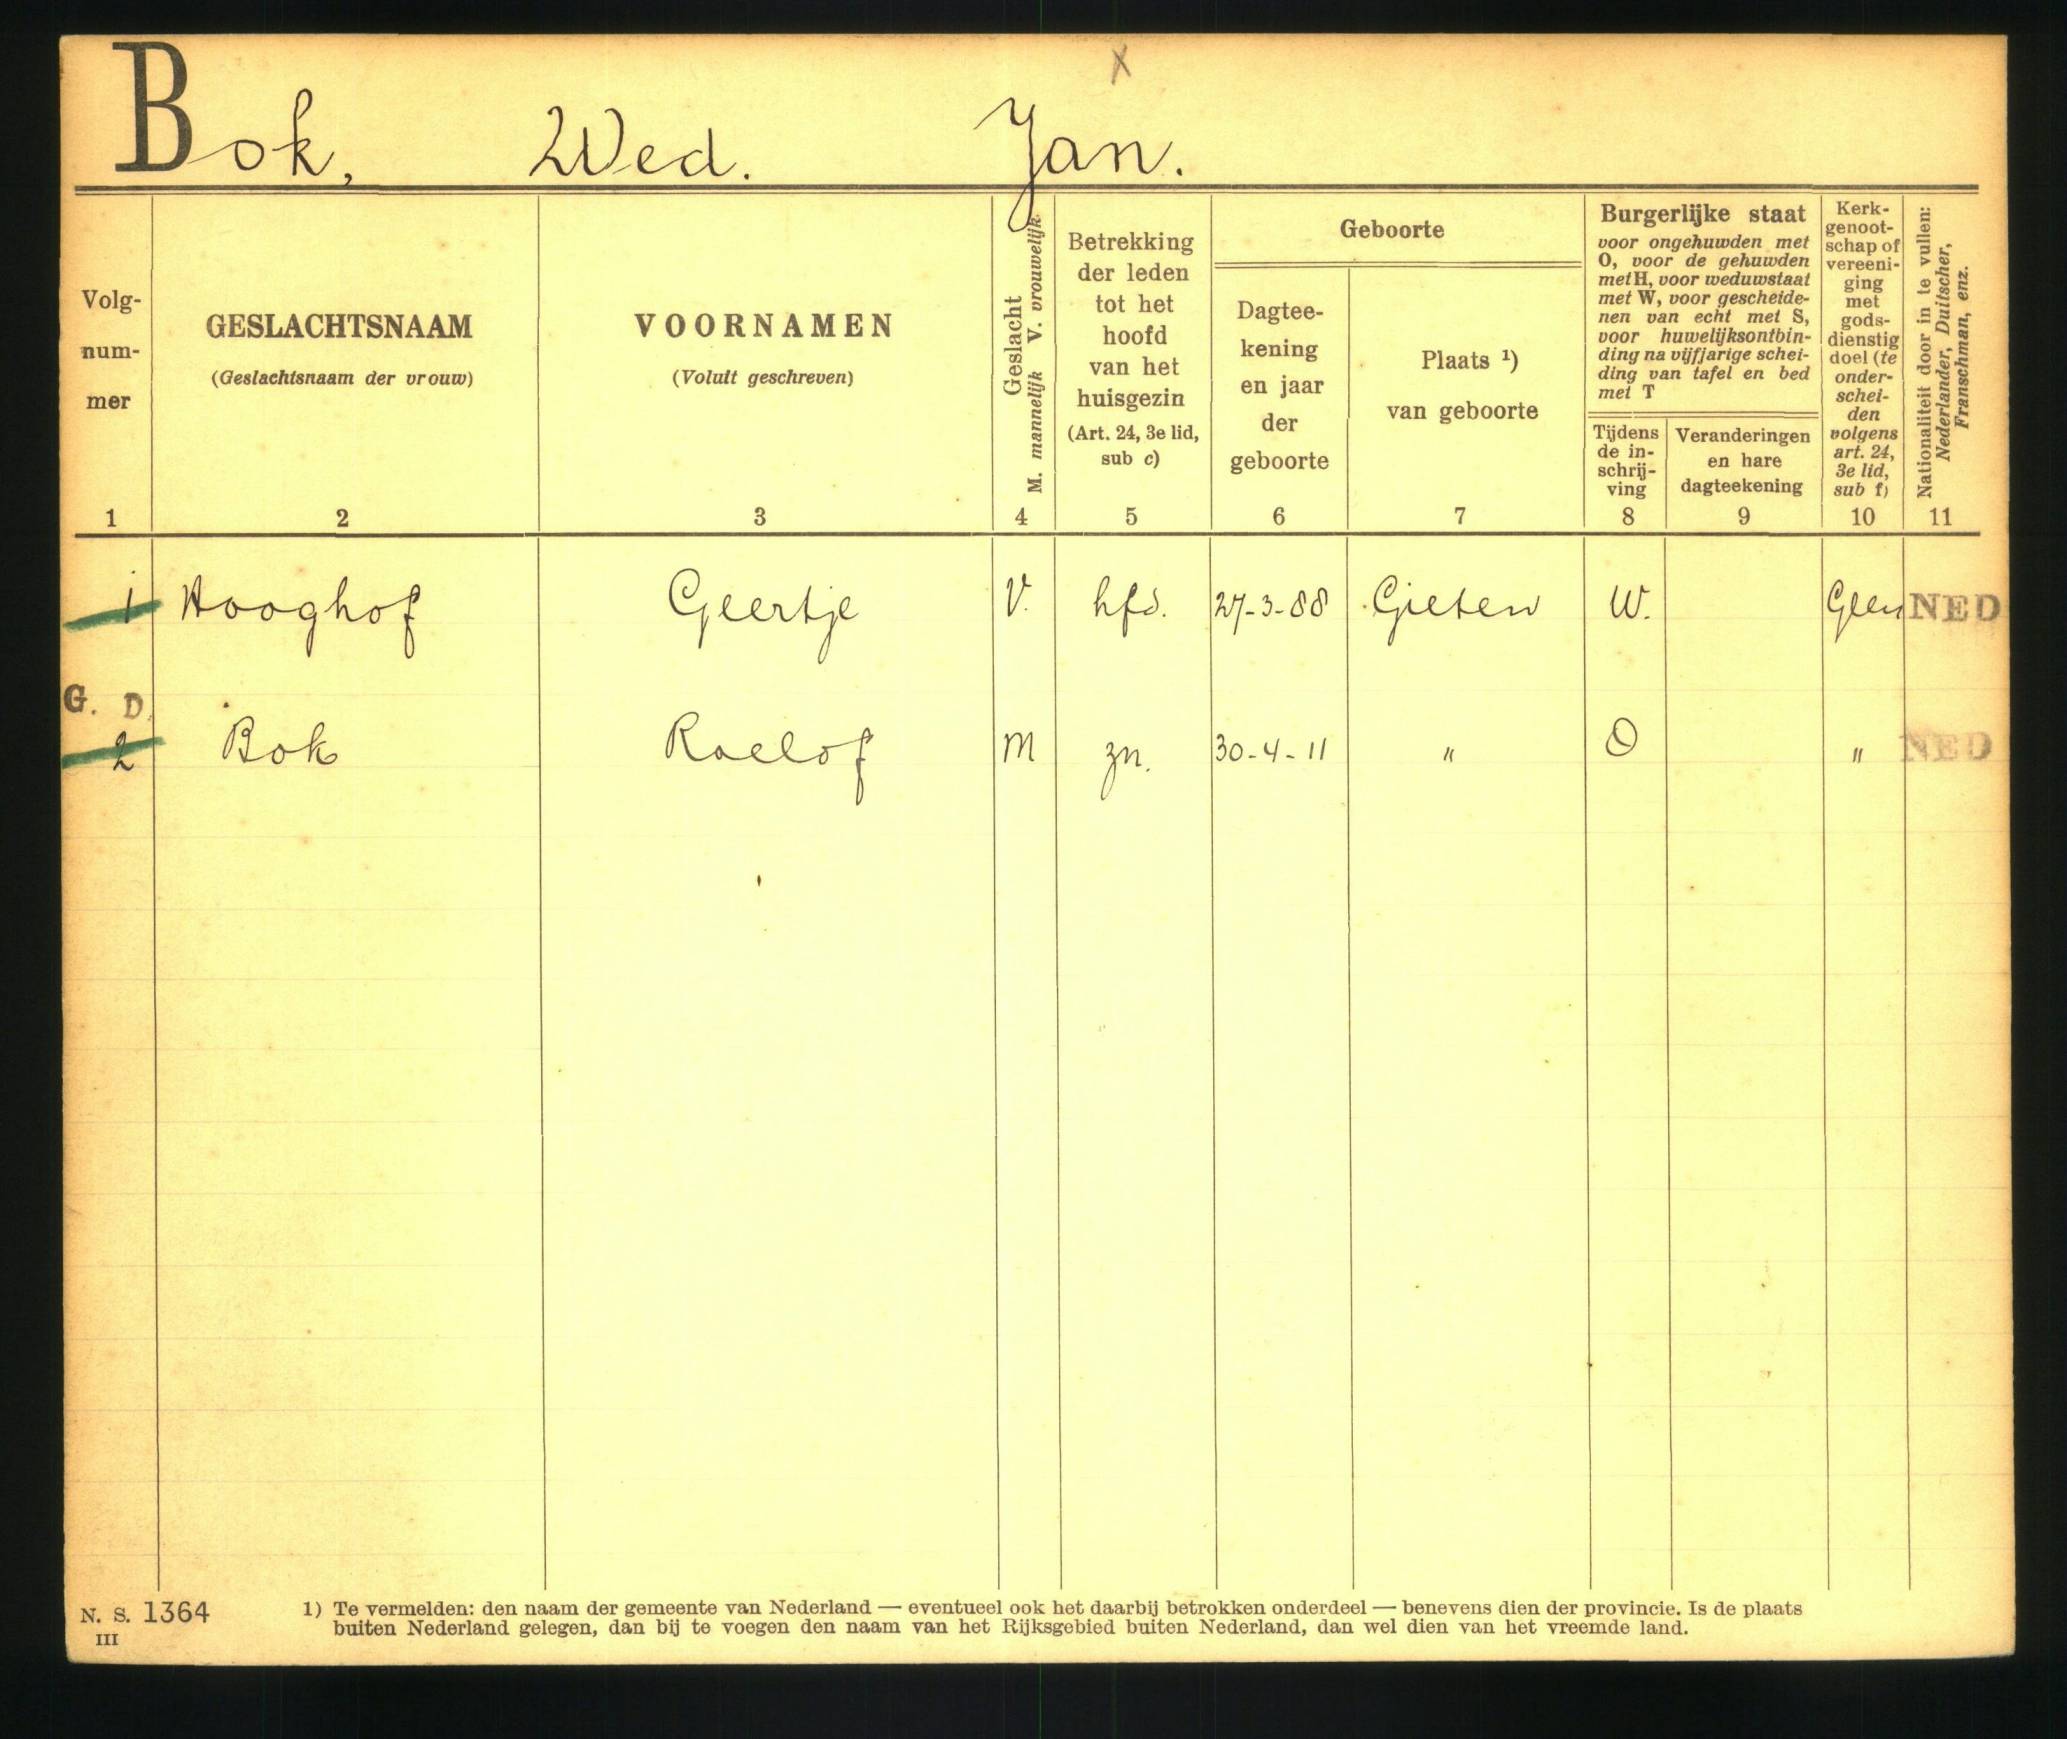 x
Bok, Wed. Jan.
Volg-
num-
mer
1
GESLACHTSNAAM
(Geslachtsnaam der vrouw)
2
VOORNAMEN
(Voluit geschreven)
3
Geslacht
M. mannelijk V. vrouwelijk
4
Betrekking
der leden
tot het
hoofd
van het
huisgezin
(Art. 24, 3e lid,
sub c)
5
Geboorte
Dagtee-
kening
en jaar
der
geboorte
6
Plaats ¹)
van geboorte
7
Burgerlijke staat
voor ongehuwden met
O, voor de gehuwden
met H, voor weduwstaat
met W, voor gescheide-
nen van echt met S,
voor huwelijksontbin-
ding na vijfjarige schei-
ding van tafel en bed
met T
Tijdens
de in-
schrij-
ving
8
Veranderingen
en hare
dagteekening
9
Kerk-
genoot-
schap of
vereeni-
ging
met
gods-
dienstig
doel (te
onder-
schei-
den
volgens
art. 24,
3e lid,
sub f)
10
Nationaliteit door in te vullen:
Nederlander, Duitscher,
Franschman, enz.
11
1 Hooghof Geertje V. hfd. 27-3-88 Gieten W. Geen NED
G. D.
2 Bok Roelof M zn. 30-4-11 " O " NED
N. S. 1364
III
1) Te vermelden: den naam der gemeente van Nederland — eventueel ook het daarbij betrokken onderdeel — benevens dien der provincie. Is de plaats
buiten Nederland gelegen, dan bij te voegen den naam van het Rijksgebied buiten Nederland, dan wel dien van het vreemde land.